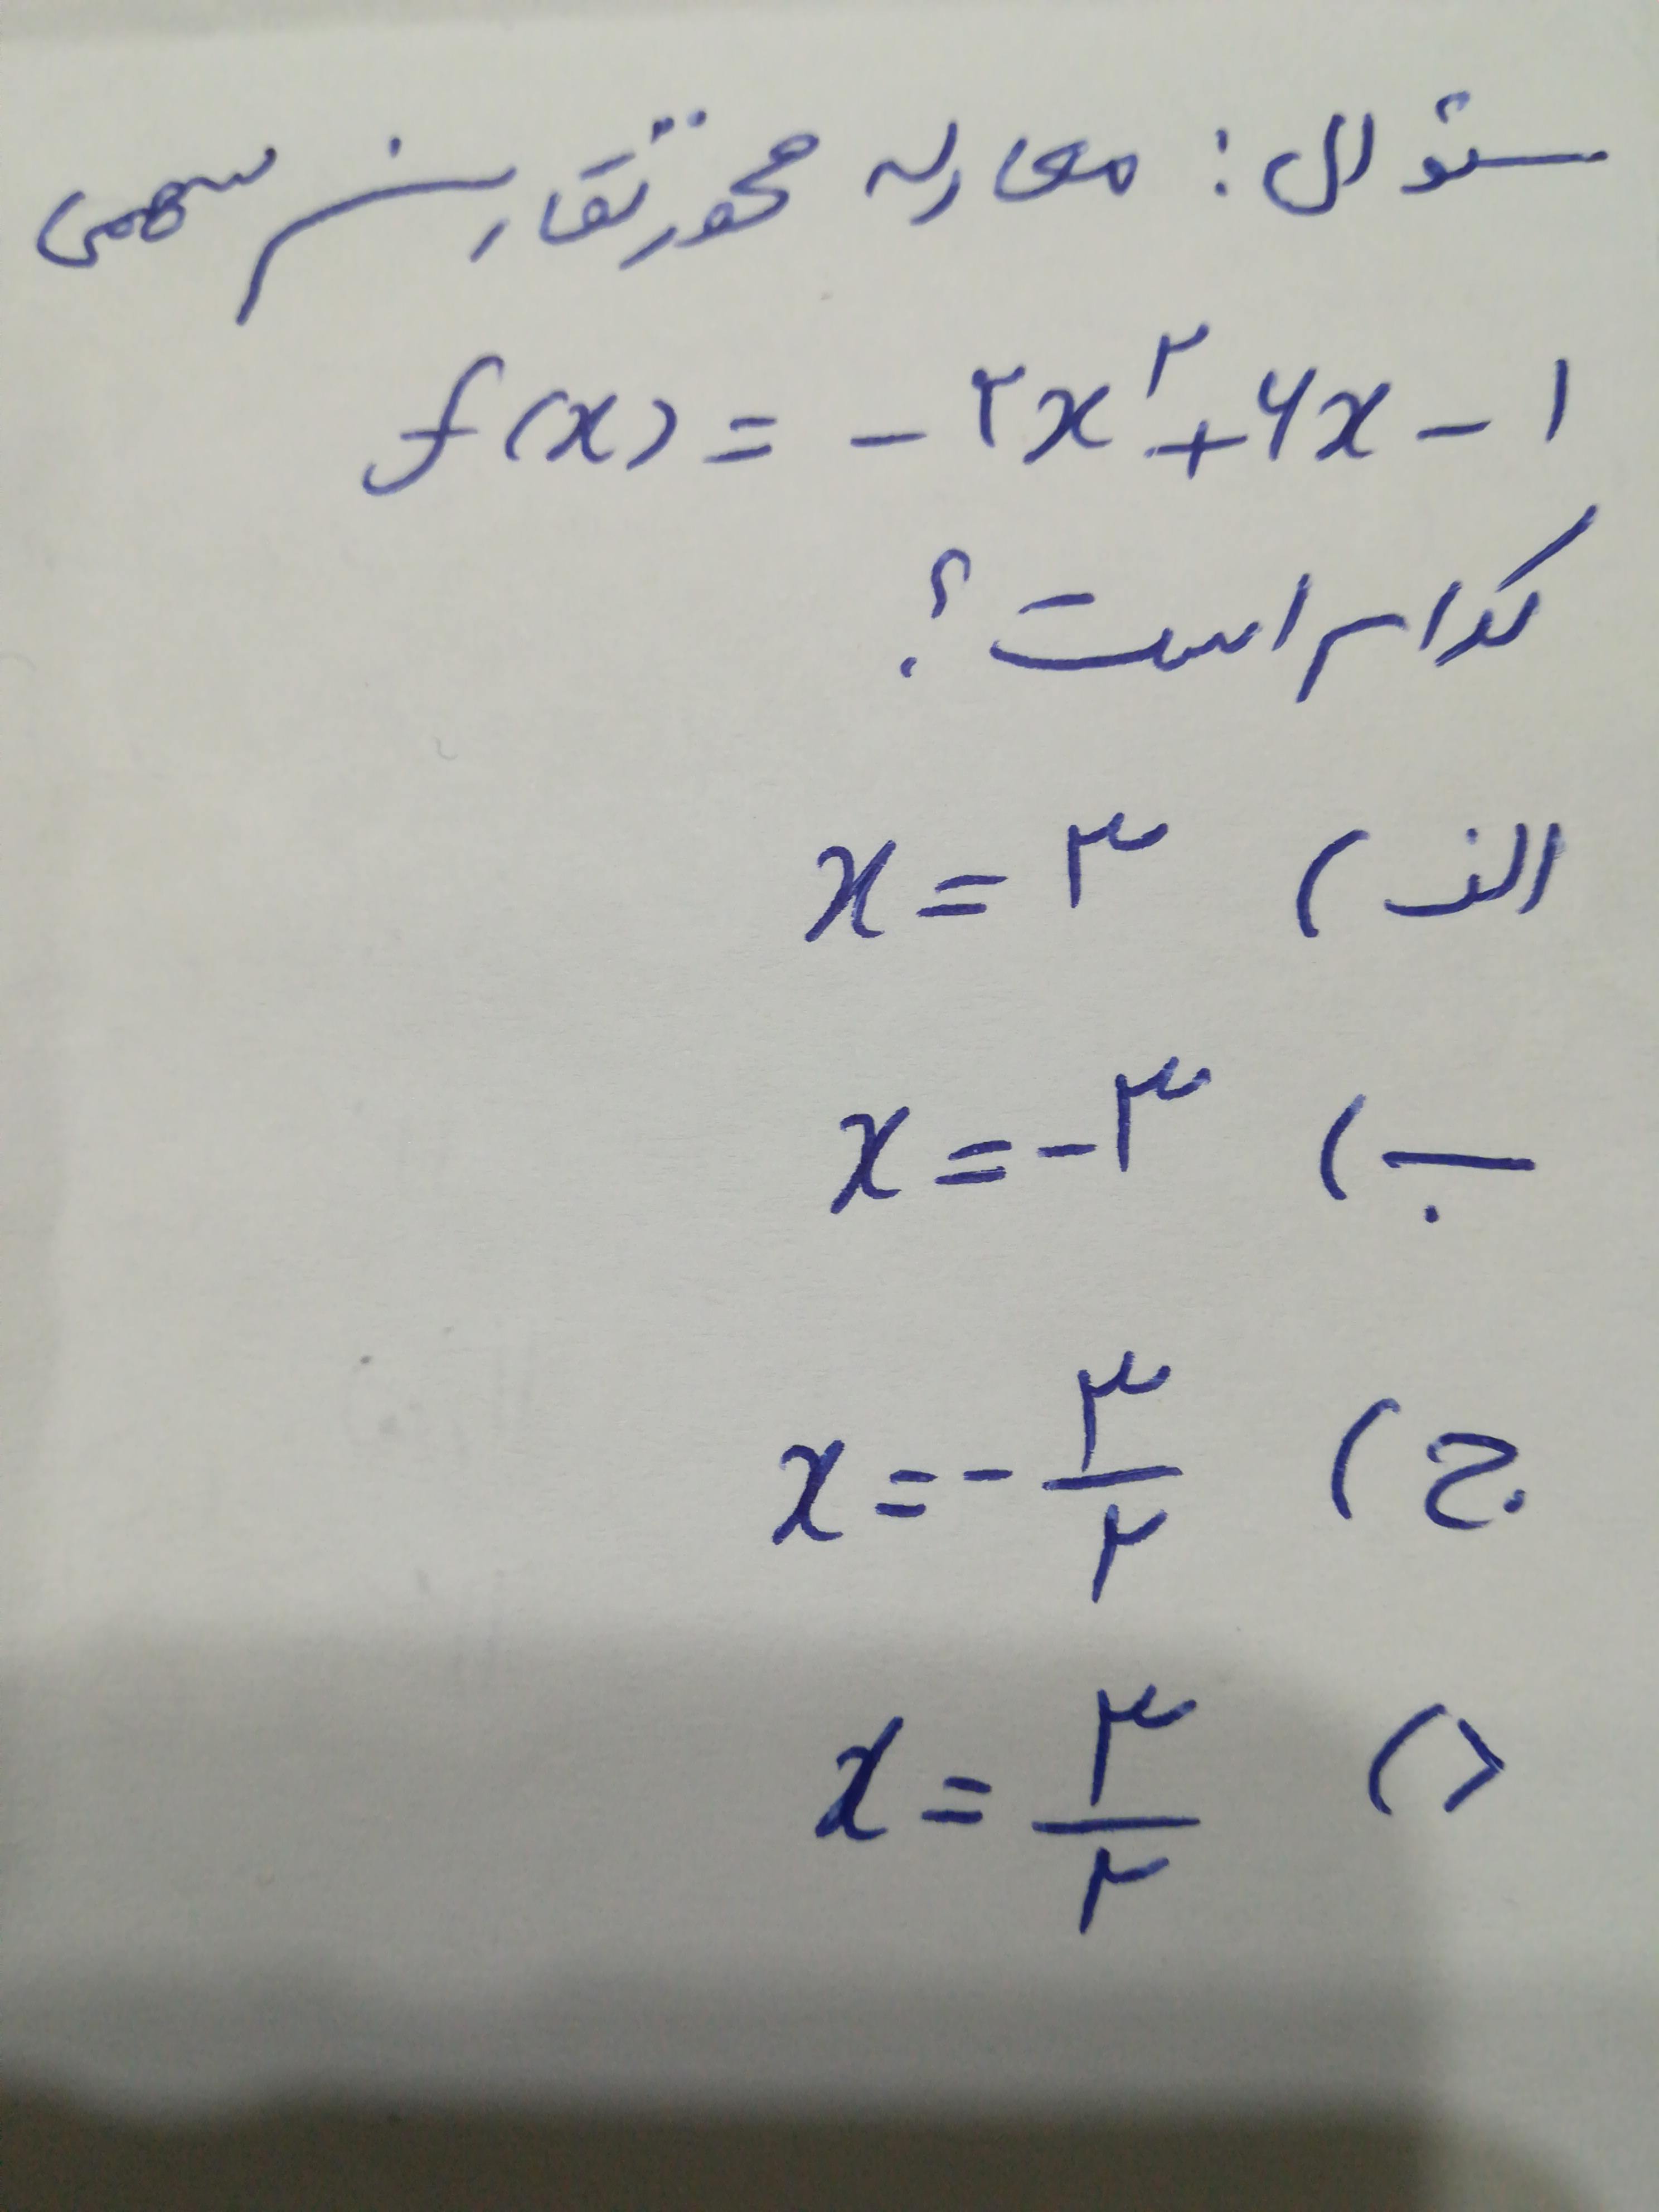 سئوال: معادله محور تقارن سهمی
f(x) = -۲x²+۶x-۱
کدام است؟
الف) x = ۳
ب) x = -۳
ج) x = -۳/۲
د) x = ۳/۲